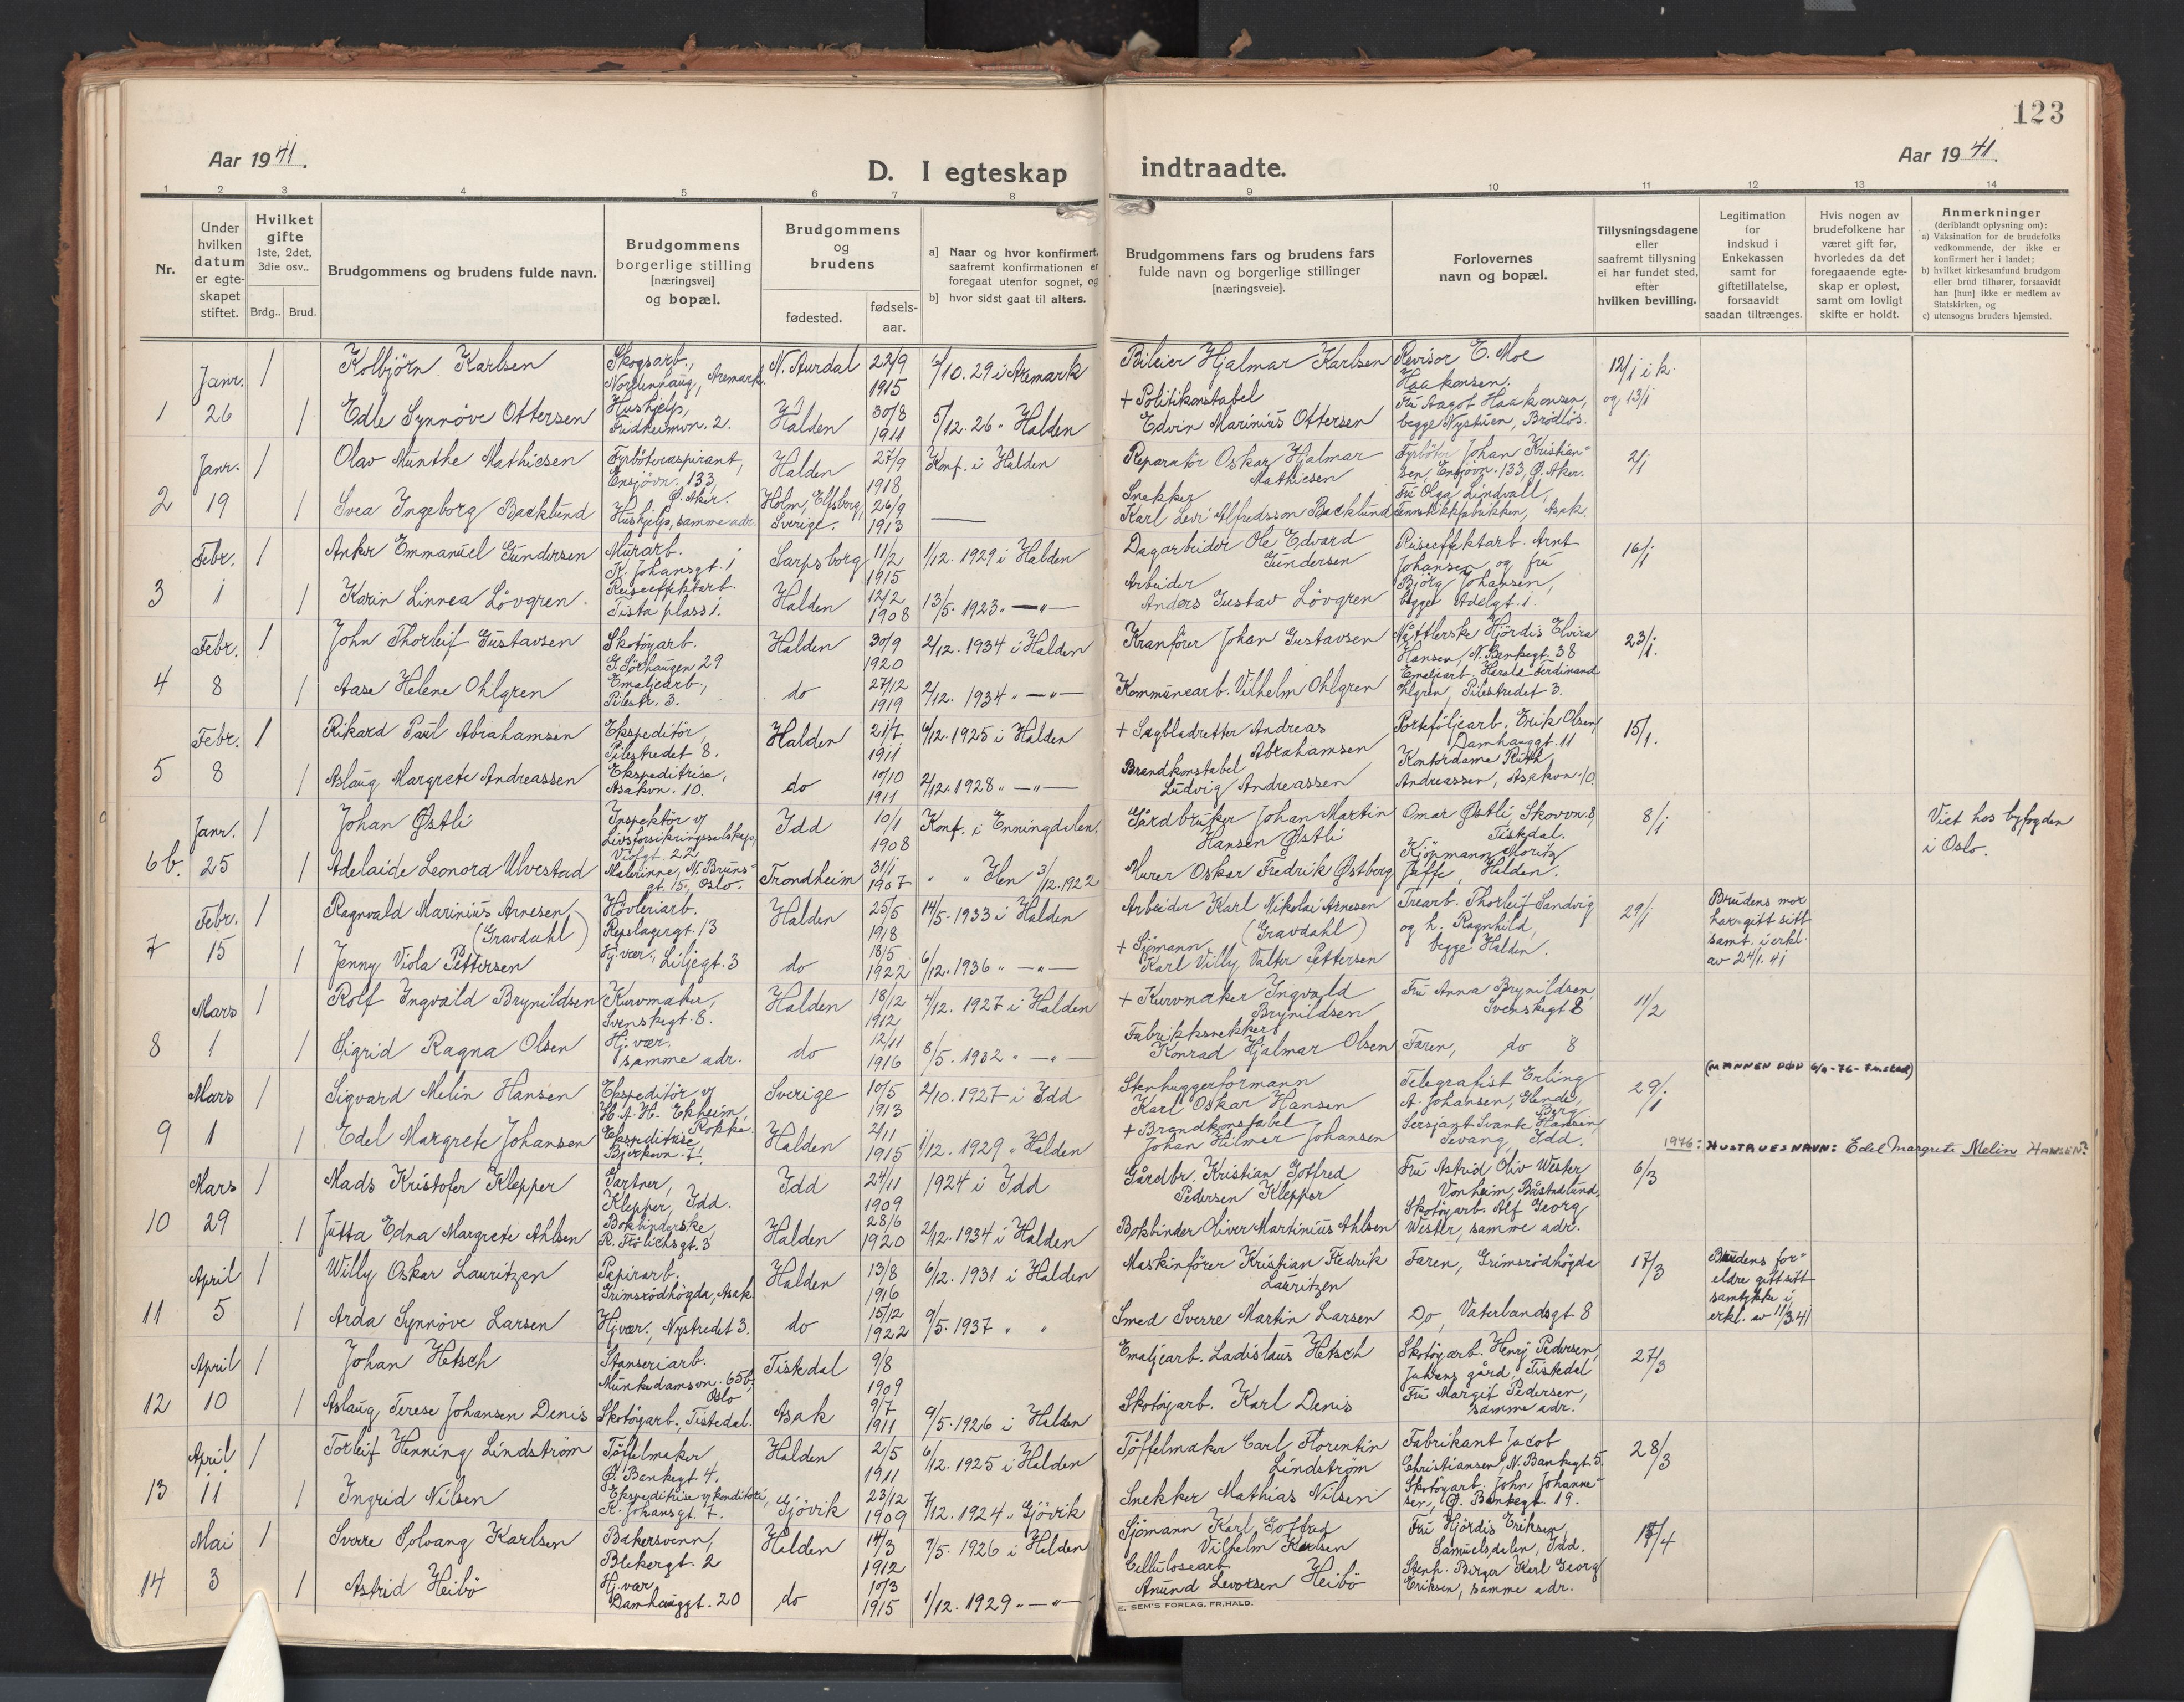 123
Aar 1941.
D. I egteskap indtraadte.
Aar 1941.
1 2 3 4 5 6 7 8 9 10 11 12 13 14
Nr.
Under hvilken datum er egteskapet stiftet.
Hvilket gifte 1ste, 2det, 3die osv..
Brdg.. Brud.
Brudgommens og brudens fulde navn.
Brudgommens borgerlige stilling [næringsvei] og bopæl.
Brudgommens og brudens
fødested.
fødsels-aar.
a) Naar og hvor konfirmert, saafremt konfirmationen er foregaat utenfor sognet, og
b) hvor sidst gaat til alters.
Brudgommens fars og brudens fars fulde navn og borgerlige stillinger [næringsveie].
Forlovernes navn og bopæl.
Tillysningsdagene eller saafremt tillysning ei har fundet sted, efter hvilken bevilling.
Legitimation for indskud i Enkekassen samt for giftetillatelse, forsaavidt saadan tiltrænges.
Hvis nogen av brudefolkene har været gift før, hvorledes da det foregaaende egteskap er opløst, samt om lovligt skifte er holdt.
Anmerkninger
(deriblandt oplysning om):
a) Vaksination for de brudefolks vedkommende, der ikke er konfirmert her i landet;
b) hvilket kirkesamfund brudgom eller brud tilhører, forsaavidt han [hun] ikke er medlem av Statskirken, og
c) utensogns bruders hjemsted.
Janr. 1 Kolbjörn Karlsen Skogsarb., Nordenhaug, Aremark. N. Aurdal 22/9 1915 /10. 29 i Aremark Bileier Hjalmar Karlsen Revisor E. Moe Haakonsen. 12/1 i k.
1 26 1 Edle Synnöve Ottersen Hushjelp, Fridheimvn. 2. Halden 30/8 1911 5/12. 26 " Halden + Politikonstabel Edvin Marinius Ottersen Fru Aagot Haakonsen, begge Nystuen, Brödlös. og 13/1
Janr. 1 Olav Munthe Mathiesen Fyrböteraspirant, Ensjövn. 133, Ø. Aker. Halden 27/9 1918 Konf. i Halden Reparatör Oskar Hjalmar Mathiesen Fyrböter Johan Kristiansen, Ensjövn. 133, Ø. Aker. 2/1
2 19 1 Svea Ingeborg Backlund Hushjelp, samme adr. Holm, Elfsborg, Sverige. 26/9 1913 — Snekker Karl Levi Alfredsson Backlund Fru Olga Lindvall, Asak.
Febr. 1 Anker Emmanuel Gundersen Murarb. K. Johansgt. 1 Sarpsborg 11/2 1915 1/12. 1929 i Halden Dagarbeider Ole Edvard Gundersen Reiseeffektarb. Arnt Johansen og fru 16/1
3 1 1 Karin Linnea Lövgren Reiseeffektarb. Tista plass 1. Halden 12/2 1908 13/5. 1923 " — " — Arbeider Anders Gustav Lövgren Björg Johansen, begge Adelgt. 1.
Febr. 1 John Thorleif Gustavsen Skotöyarb. G. Sörhaugen 29 Halden 30/9 1920 2/12. 1934 i Halden Kranförer Johan Gustavsen Nåttlerske Hjördis Elvira Hansen, N. Bankegt. 38 23/1.
4 8 1 Aase Helene Ohlgren Emaljearb., Pilestr. 3. do 27/12 1919 2/12. 1934 " — " — Kommunearb. Vilhelm Ohlgren Emaljearb. Harald Ferdinand Ohlgren, Pilestredet 3.
Febr. 1 Rikard Paul Abrahamsen Ekspeditör, Pilestredet 8. Halden 21/7 1911 6/12. 1925 i Halden + Sagbladretter Andreas Abrahamsen Porteföljearb. Erik Olsen, Damhauggt. 11 15/1.
5 8 1 Aslaug Margrete Andreassen Ekspeditrise, Asakvn. 10. do 10/10 1911 2/12. 1928 " — " — Brandkonstabel Ludvig Andreassen Kontordame Ruth Andreassen, Asakvn. 10.
Janr. 1 Johan Østli Inspektör v/ Livsforsikringsselskap, Violgt. 22 Idd 10/1 1908 Konf. i Enningdalen. Gårdbruker Johan Martin Hansen Østli Omar Østli Skovvn. 8, Tistedal. 8/1 Viet hos byfogden i Oslo.
6 b. 25 1 Adelaide Leonora Ulvestad Malerinne, N. Brunsgt. 15, Oslo. Trondheim 31/1 1907 " " Ilen 3/12. 1922 Murer Oskar Fredrik Østberg Kjöpmann Moritz Jaffe, Halden.
Febr. 1 Ragnvald Marinius Arnesen (Gravdahl) Hövleriarb. Repslagergt. 13 Halden 25/5 1918 14/5. 1933 i Halden Arbeider Karl Nikolai Arnesen (Gravdahl) Trearb. Thorleif Sandvig og h. Ragnhild, begge Halden. 29/1 Brudens mor har gitt sitt samt. i erkl. av 24/1. 41
7 15 1 Jenny Viola Pettersen Hj. vær., Liljegt. 3 do 18/5 1922 6/12. 1936 " — " — + Sjömann Karl Villy Valter Pettersen
Mars 1 Rolf Ingvald Brynildsen Kurvmaker, Svenskegt. 8. Halden 18/2 1912 4/12. 1927 i Halden + Kurvmaker Ingvald Brynildsen Fru Anna Brynildsen, Svenskegt 8 11/2
8 1 1 Sigrid Ragna Olsen Hj. vær. samme adr. do 12/11 1916 8/5. 1932 " — " — Fabrikksnekker Konrad Hjalmar Olsen Faren, do 8
(MANNEN DØD 6/9-76-)
Mars 1 Sigvard Melin Hansen Ekspeditör v/ H. A. H. Ekheim, Rokke. Sverige 10/5 1913 2/10. 1927 i Idd Stenhuggerformann Karl Oskar Hansen Telegrafist Erling A. Johansen, Glende, Berg 29/1
9 1 1 Edel Margrete Johansen Ekspeditrise, Bjerkevn. 7. Halden 2/11 1915 1/12. 1929 " Halden + Brandkonstabel Johan Hilmer Johansen Sersjant Svante Hansen, Sevang, Idd. 1976: HUSTRUES NAVN: Edel Margrete Melin HANSEN.
Mars 1 Mads Kristofer Klepper Gartner, Klepper, Idd. Idd 24/11 1909 1924 i Idd Gårdbr. Kristian Gotfred Pedersen Klepper Fru Astrid Oliv Wester Vonheim, Båstadlund, 6/3
10 29 1 Jutta Edna Margrete Ahlsen Bokbinderske, R. Flölichsgt. 3 Halden 28/6 1920 2/12. 1934 i Halden Bokbinder Oliver Martinius Ahlsen Skotöyarb. Alf Georg Wester, samme adr.
April 1 Willy Oskar Lauritzen Papirarb. Grimsrödhögda, Asak. Halden 13/8 1916 6/12. 1931 i Halden Maskinförer Kristian Fredrik Lauritzen Faren, Grimsrödhögda 17/3 Brudens foreldre gitt sitt samtykke i erkl. av 11/3 41
11 5 1 Arda Synnöve Larsen Hj. vær., Nystredet 3. do 15/12 1922 9/5. 1937 " " Smed Sverre Martin Larsen Do, Vaterlandsgt 8
April 1 Johan Hetsch Stanseriarb. Munkedamsvn. 65 b, Oslo Tistedal 9/8 1909 Emaljearb. Ladislaus Hetsch Skotöyarb. Henry Pedersen, gård, Tistedal 27/3
12 10 1 Aslaug Terese Johansen Denis Skotöyarb., Tistedal. Asak 9/7 1911 9/5. 1926 i Halden Skotöyarb. Karl Denis Fru Margit Pedersen, samme adr.
April 1 Torleif Henning Lindström Töffelmaker Ø. Bankegt 4. Halden 2/5 1911 6/12. 1925 i Halden Töffelmaker Carl Florentin Lindström Fabrikant Jacob Christiansen, N. Bankegt. 5. 28/3
13 11 1 Ingrid Nilsen Ekspeditrise v/ konditori, K. Johansgt. 7. Gjövik 23/12 1909 7/12. 1924 " Gjövik Snekker Mathias Nilsen Skotöyarb. John Johannesen, Ø. Bankegt. 19.
Mai 1 Sverre Solvang Karlsen Bakersvenn, Blekergt. 2 Halden 14/3 1912 9/5. 1926 i Halden Sjömann Karl Gotfred Vilhelm Karlsen Fru Hjördis Eriksen, Samuelsdalen, Idd. 17/4
14 3 1 Astrid Heibö Hj. vær. Damhauggt. 20 do 10/3 1915 1/12. 1929 " — " — Cellulosearb. Anund Levorsen Heibö Stenh. Birger Karl Georg Eriksen, samme adr.
E. SEM'S FORLAG, FR.HALD.